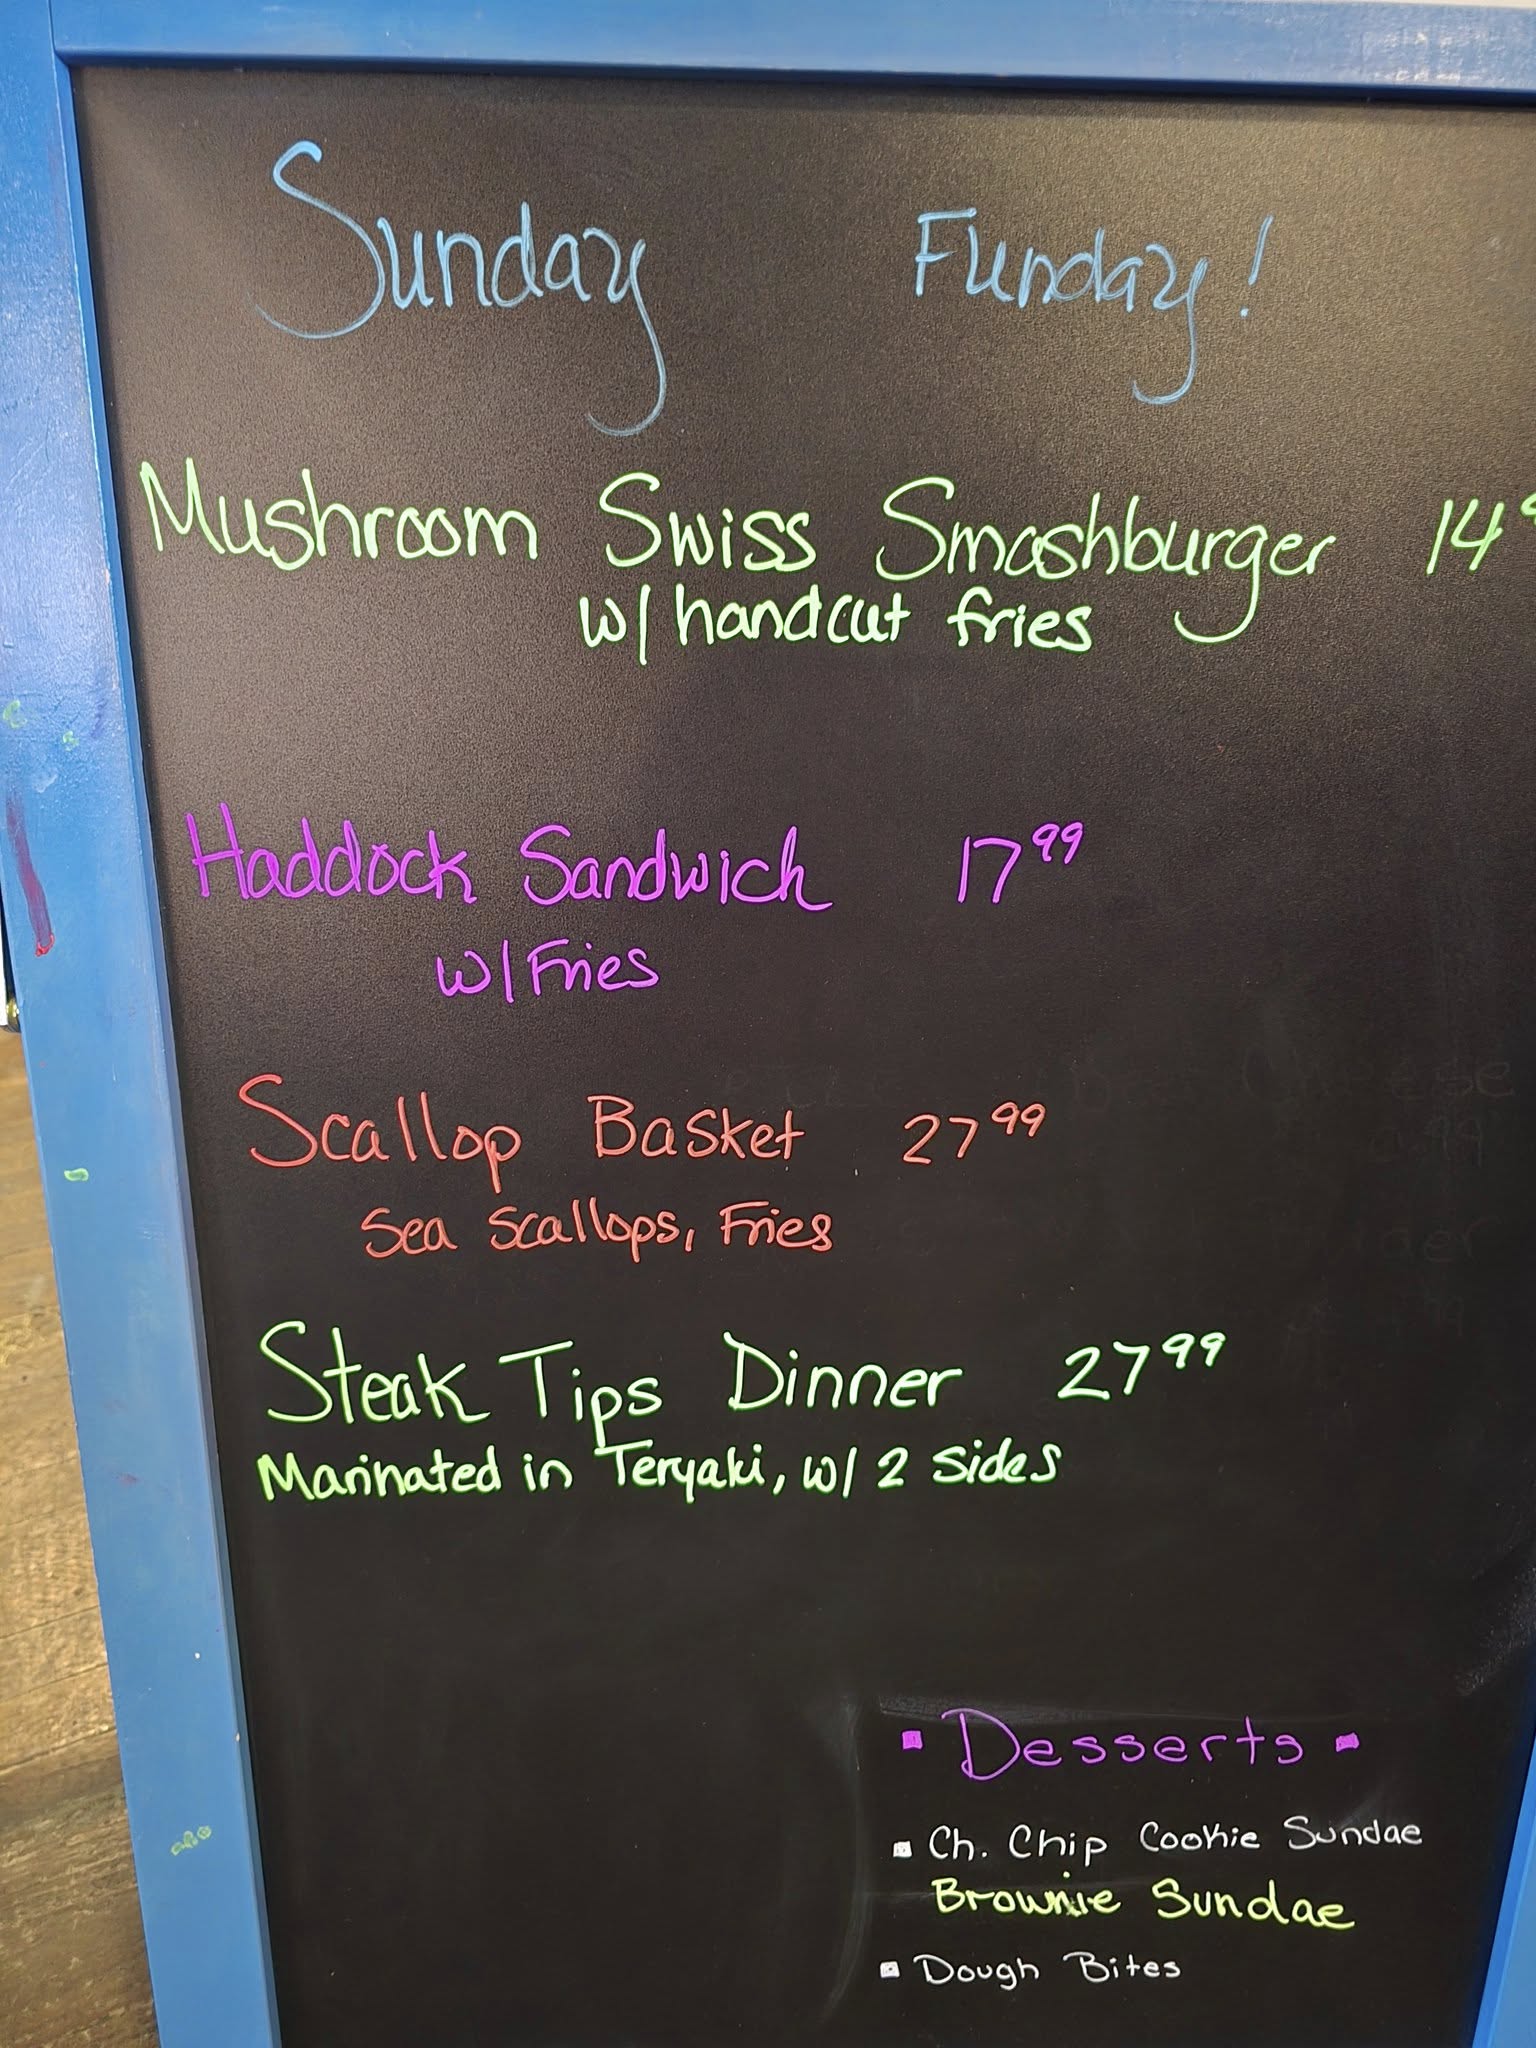 Sunday Funday!
Mushroom Swiss Smashburger 14
w/ handcut fries
Haddock Sandwich 17⁹⁹
w/ Fries
Scallop Basket 27⁹⁹
Sea Scallops, Fries
Steak Tips Dinner 27⁹⁹
Marinated in Teryaki, w/ 2 sides
▪ Desserts ▪
▪ Ch. Chip Cookie Sundae
Brownie Sundae
▪ Dough Bites